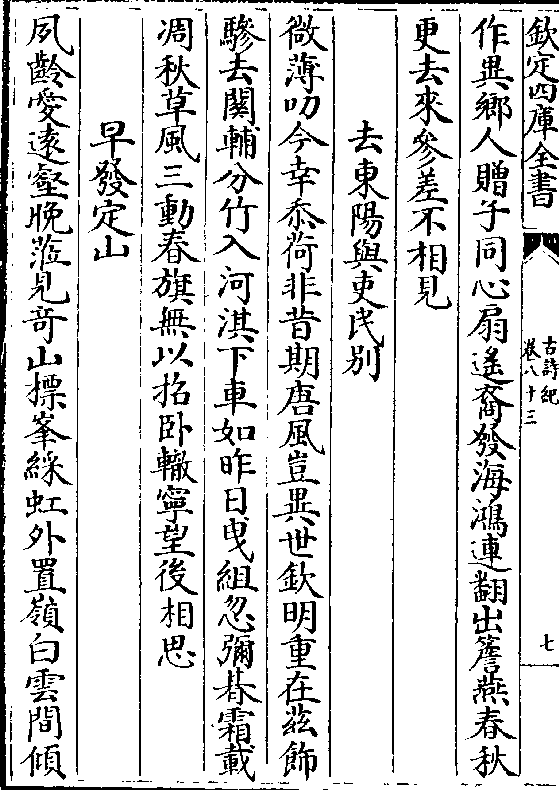 欽定四庫全書
古詩紀
卷八十三
七
作異鄉人贈子同心扇遙裔發海鴻連翩出簷燕春秋
更去來參差不相見
去東陽與吏民別
微薄叨今幸忝荷非昔期唐風豈異世欽明重在茲飾
驂去關輔分竹入河淇下車如昨日曳組忽彌朞霜載
凋秋草風三動春旗無以招卧轍寧望後相思
早發定山
夙齡愛遠壑晚蒞見奇山摽峯綵虹外置嶺白雲間傾